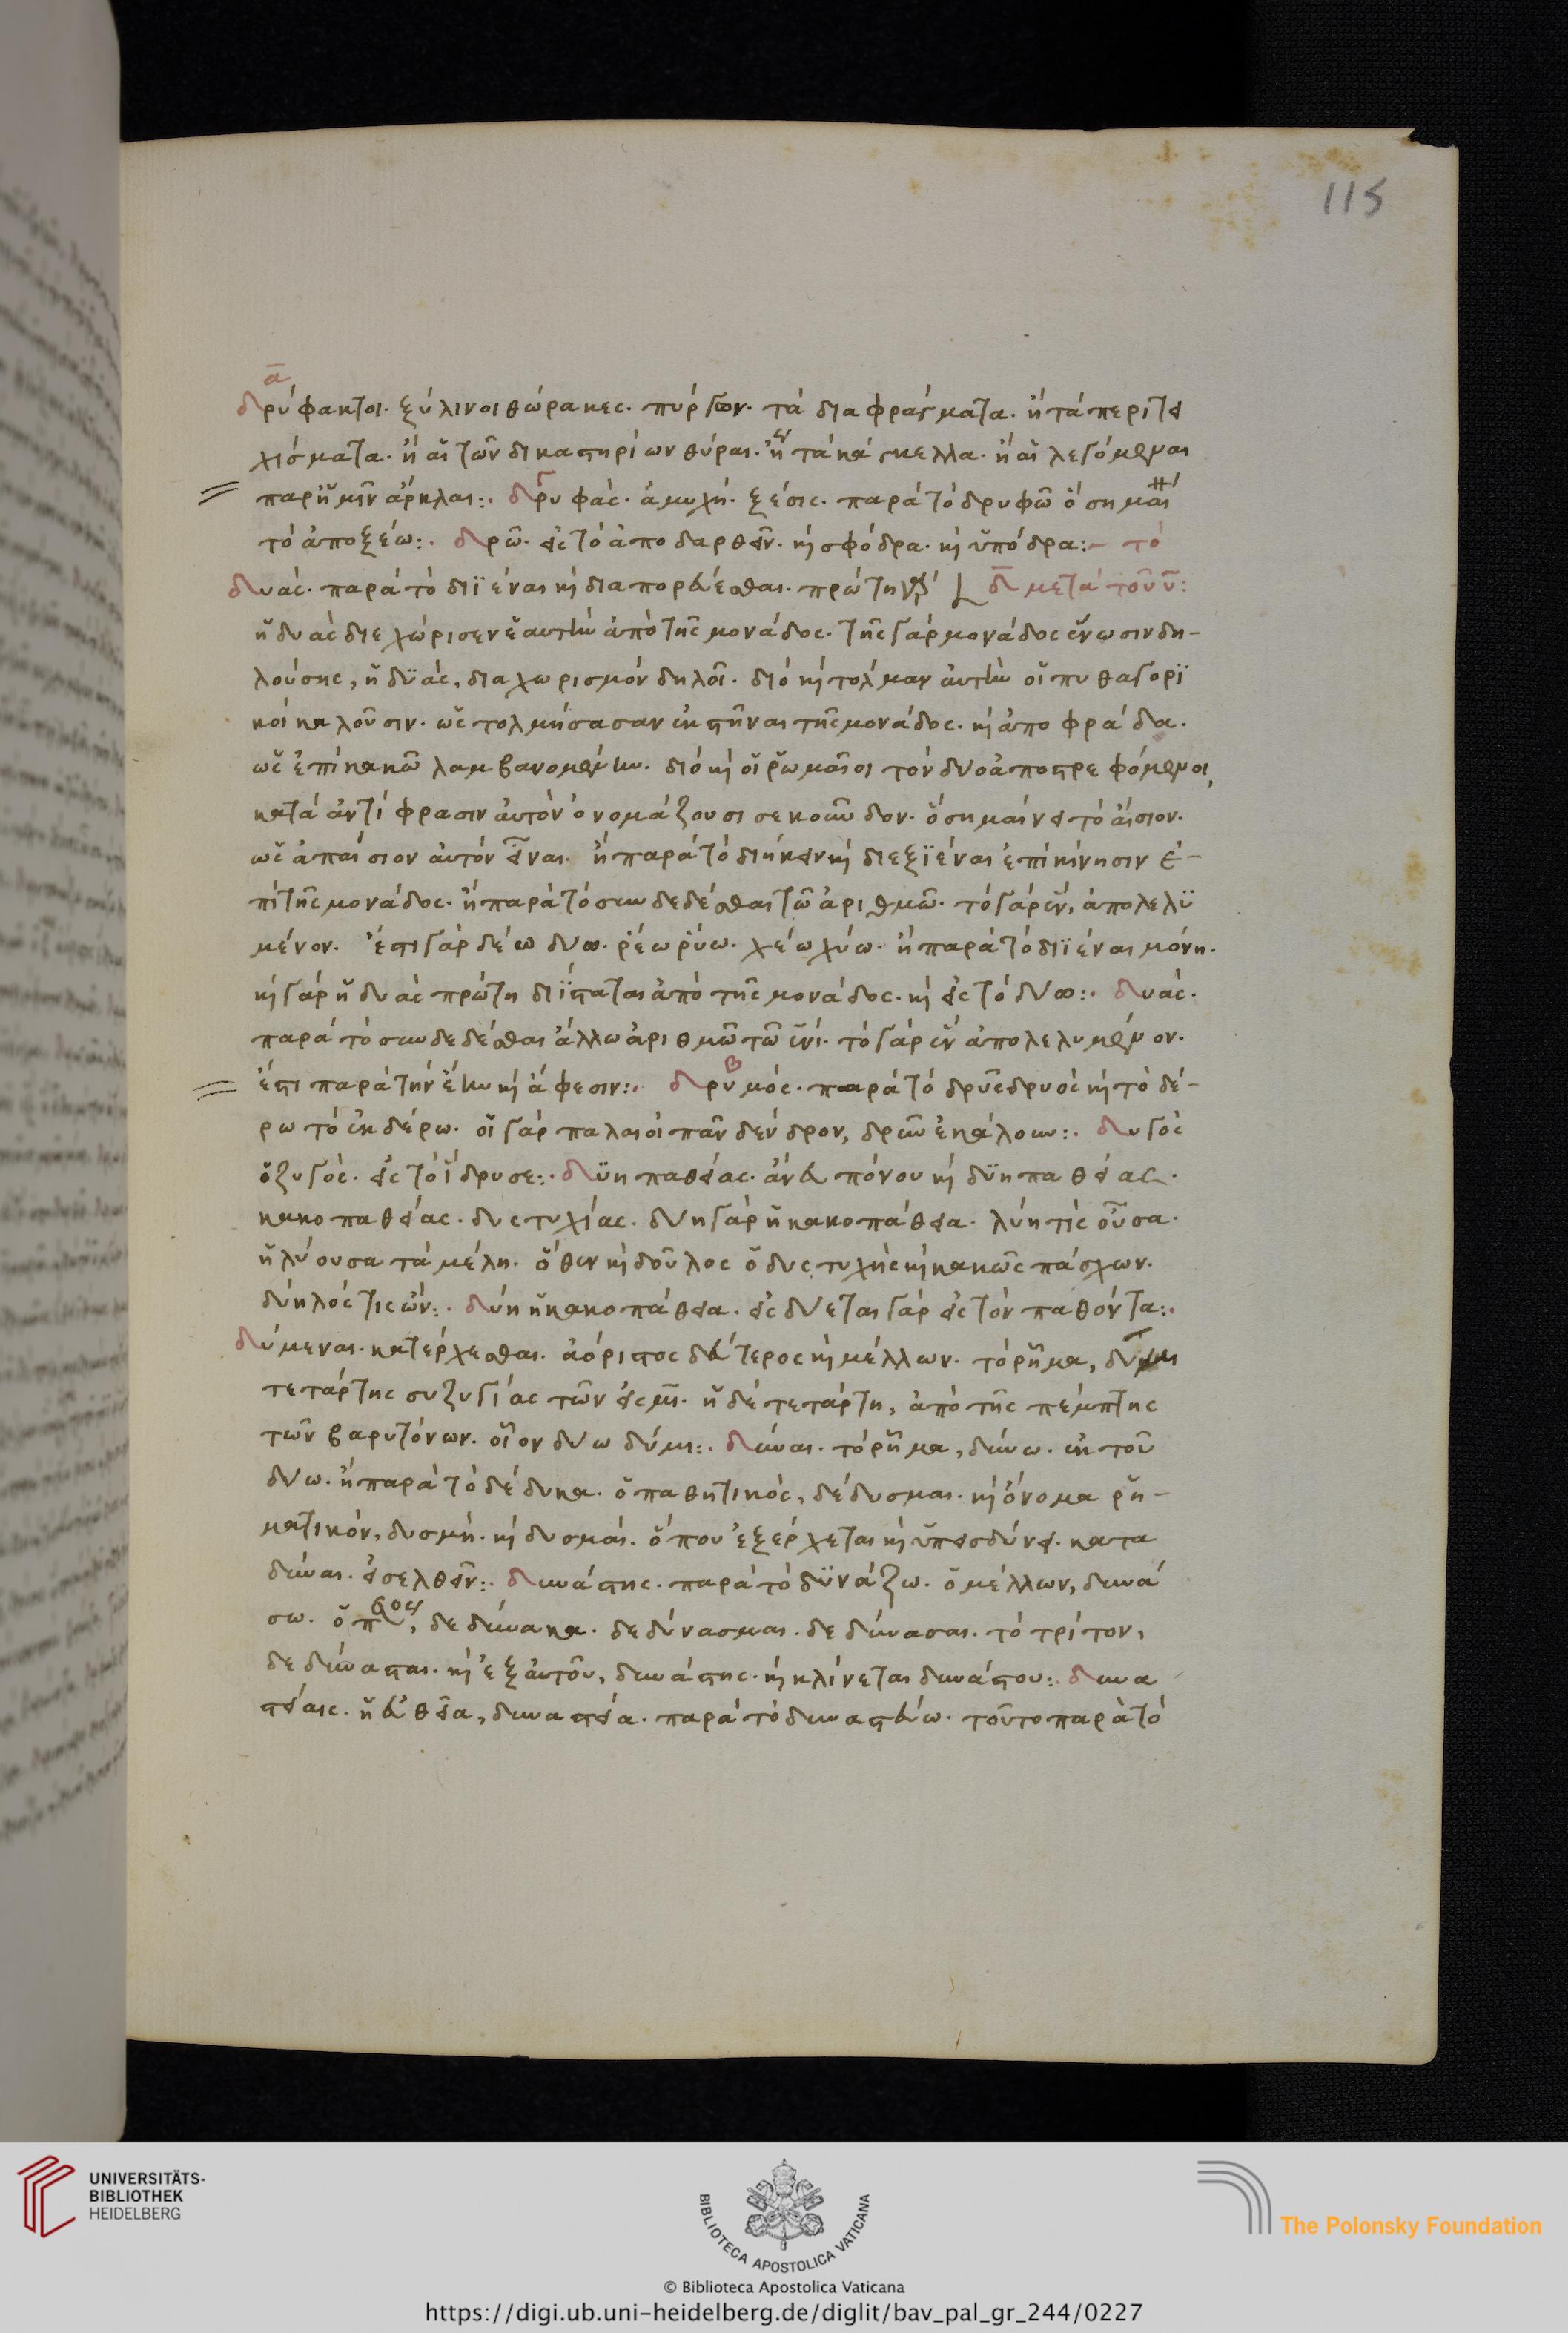 115
ᾱ
δρύφακτοι· ξύλινοι θώρακες· πύργων· τὰ διαφράγματα· ἢ τὰ περιτει
χίσματα· ἢ αἱ τῶν δικαστηρίων θύραι· ἢ τὰ κάγκελλα· ἢ αἱ λεγόμεναι
παρ ἡμῖν ἄρκλαι:· δρυφάς· ἀμυχή· ξέσις· παρὰ τὸ δρυφῶ ὃ σημαί
τὸ ἀποξέω:· δρῶ· εἰς τὸ ἀποδαρθεῖν· καὶ σφόδρα· καὶ ὑπόδρα:- τὸ
δυάς· παρὰ τὸ διϊέναι καὶ διαπορεύεσθαι· πρώτη γὰρ δ̄ μετὰ τοῦ ῡ:
ἡ δυὰς διεχώρισεν ἑαυτὴν ἀπὸ τῆς μονάδος· τῆς γὰρ μονάδος ἕνωσιν δη-
λούσης, ἡ δϋάς, διαχωρισμὸν δηλοῖ· διὸ καὶ τολμαν αὐτὴν οἱ πυθαγορϊ
κοὶ καλοῦσιν· ὡς τολμήσασαν ἐκστῆναι τῆς μονάδος· καὶ ἀποφράδα·
ὡς ἐπὶ κακῶ λαμβανομένην· διὸ καὶ οἱ ῥωμαῖοι τὸν δύο ἀποστρεφόμενοι,
κατὰ ἀντίφρασιν αὐτὸν ὀνομάζουσι σεκοῦνδον· ὃ σημαίνει τὸ αἴσιον·
ὡς ἀπαίσιον αὐτὸν εἶναι· ἢ παρὰ τὸ διήκειν καὶ διεξϊέναι ἐπὶ κίνησιν ἐ-
πὶ τῆς μονάδος· ἢ παρὰ τὸ συνδεδέσθαι τῶ ἀριθμῶ· τὸ γὰρ ἓν, ἀπολελϋ
μένον· ἔστι γὰρ δέω δύω· ῥέω ῥύω· χέω χύω· ἢ παρὰ τὸ διϊέναι μόνη·
καὶ γὰρ ἡ δυὰς πρώτη διΐσταται ἀπὸ τῆς μονάδος· καὶ εἰς τὸ δύω:· δυάς·
παρὰ τὸ συνδεδέσθαι ἄλλω ἀριθμῶ τῶ ἑνί· τὸ γὰρ ἓν ἀπολελυμένον·
ἔστι παρὰ τὴν ἕνην καὶ ἄφεσιν:· δρυμός· παρὰ τὸ δρῦς δρυὸς καὶ τὸ δέ-
ρω τὸ ἐκδέρω· οἱ γὰρ παλαιοὶ πᾶν δένδρον, δρῦν ἐκάλουν:· δυγός
ὁ ζυγός· εἰς τὸ ἵδρυσε:· δϋηπαθείας· ἀνευ πόνου καὶ δϋηπαθείας·
κακοπαθείας· δυστυχίας· δύη γὰρ ἡ κακοπάθεια· λύη τὶς οὖσα·
ἡ λύουσα τὰ μέλη· ὅθεν καὶ δοῦλος ὁ δυστυχὴς καὶ κακῶς πάσχων·
δύηλός τις ὤν:· δύη ἡ κακοπάθεια· εἰσδύεται γὰρ εἰς τὸν παθόντα:·
δύμεναι· κατέρχεσθαι· ἀόριστος δεύτερος καὶ μέλλων· τὸ ῥῆμα, δῦμι
τετάρτης συζυγίας τῶν εἰς μῑ· ἡ δὲ τετάρτη, ἀπὸ τῆς πέμπτης
τῶν βαρυτόνων· οἷον δύω δύμι:· δύναι· τὸ ῥῆμα, δύνω· ἐκ τοῦ
δύω· ἢ παρὰ τὸ δέδυκα· ὁ παθητικός, δέδυσμαι· καὶ ὄνομα ῥη-
ματικόν, δυσμή· καὶ δυσμαί· ὅπου ἐξέρχεται καὶ ὑπεισδύνει· κατα
δύναι· εἰσελθεῖν:· δυνάστης· παρὰ τὸ δϋνάζω· ὁ μέλλων, δυνά
σω· ὁ π, δεδύνακα· δεδύνασμαι· δεδύνασαι· τὸ τρίτον,
δεδύνασται· καὶ ἐξ αὐτοῦ, δυνάστης· καὶ κλίνεται δυνάστου:· δυνα
στείαις· ἡ εὐθεῖα, δυναστεία· παρὰ τὸ δυναστεύω· τοῦτο παρὰ τὸ
UNIVERSITÄTS-
BIBLIOTHEK
HEIDELBERG
BIBLIOTECA APOSTOLICA VATICANA
The Polonsky Foundation
© Biblioteca Apostolica Vaticana
https://digi.ub.uni-heidelberg.de/diglit/bav_pal_gr_244/0227